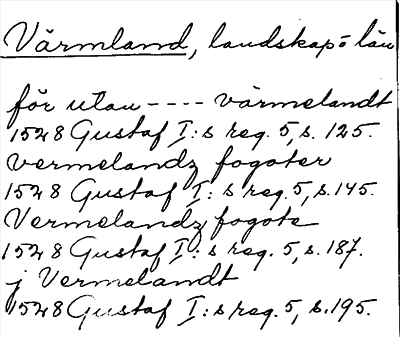 Värmland, landskap o län
för utan - - - - värmelandt
1528 Gustaf I:s reg. 5, s. 125.
vermelandz fogoter
1528 Gustaf I: s reg. 5, s. 145.
Vermelandz fogote
1528 Gustaf I: s reg. 5, s. 187.
j Vermelandt
1528 Gustaf I: s reg. 5, s. 195.